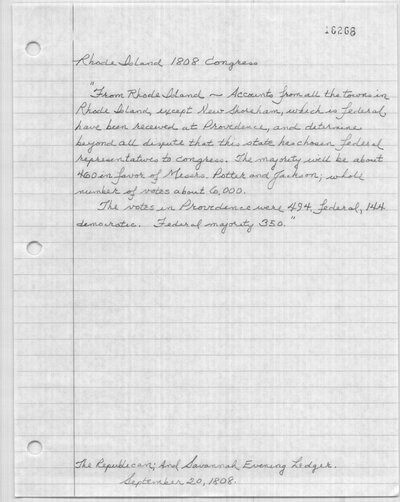 16268
Rhode Island 1808 Congress
"From Rhode Island ~ Accounts from all the towns in
Rhode Island, except New Shoreham, which is Federal,
have been received at Providence, and determine
beyond all dispute that this state has chosen Federal
representatives to congress. The majority will be about
460 in favor of Messrs. Potter and Jackson; whole
number of votes about 6,000.
The votes in Providence were 494 Federal, 144
democratic. Federal majority 350."
The Republican; And Savannah Evening Ledger.
September 20, 1808.